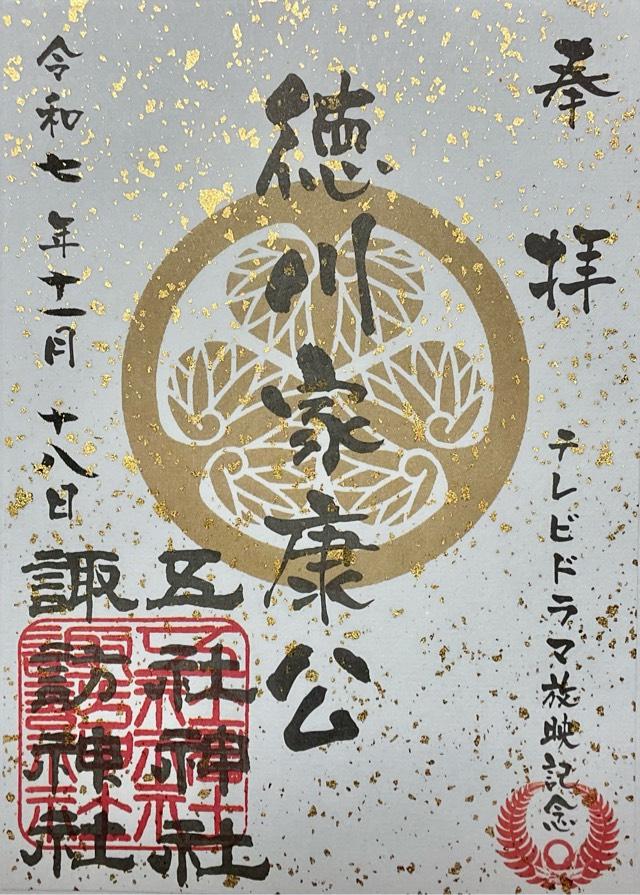 奉拝
テレビドラマ放映記念
徳川家康公
五社神社
諏訪神社
令和七年十一月十八日